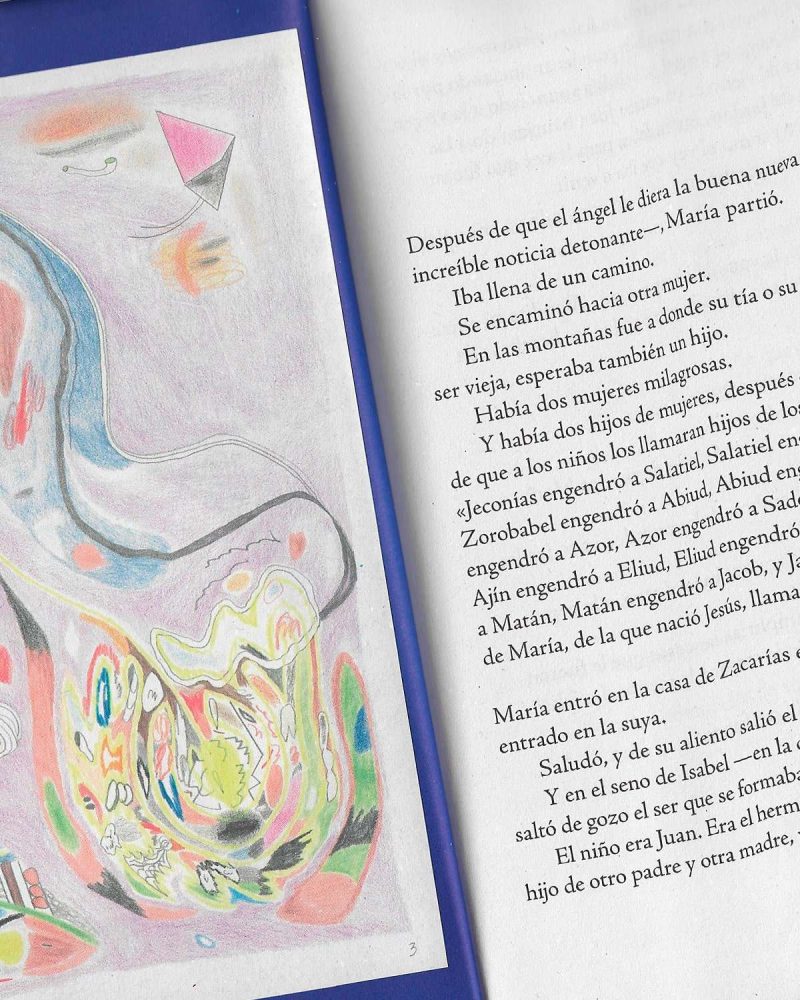 3
Después de que el ángel le diera la buena nueva
increíble noticia detonante—, María partió.
Iba llena de un camino.
Se encaminó hacia otra mujer.
En las montañas fue a donde su tía o su
ser vieja, esperaba también un hijo.
Había dos mujeres milagrosas.
Y había dos hijos de mujeres, después
de que a los niños los llamaran hijos de los
«Jeconías engendró a Salatiel, Salatiel
Zorobabel engendró a Abiud, Abiud
engendró a Azor, Azor engendró a
Ajín engendró a Eliud, Eliud engendró
a Matán, Matán engendró a Jacob, y
de María, de la que nació Jesús,
María entró en la casa de Zacarías
entrado en la suya.
Saludó, y de su aliento salió el
Y en el seno de Isabel —en la
saltó de gozo el ser que se formaba
El niño era Juan. Era el
hijo de otro padre y otra madre,